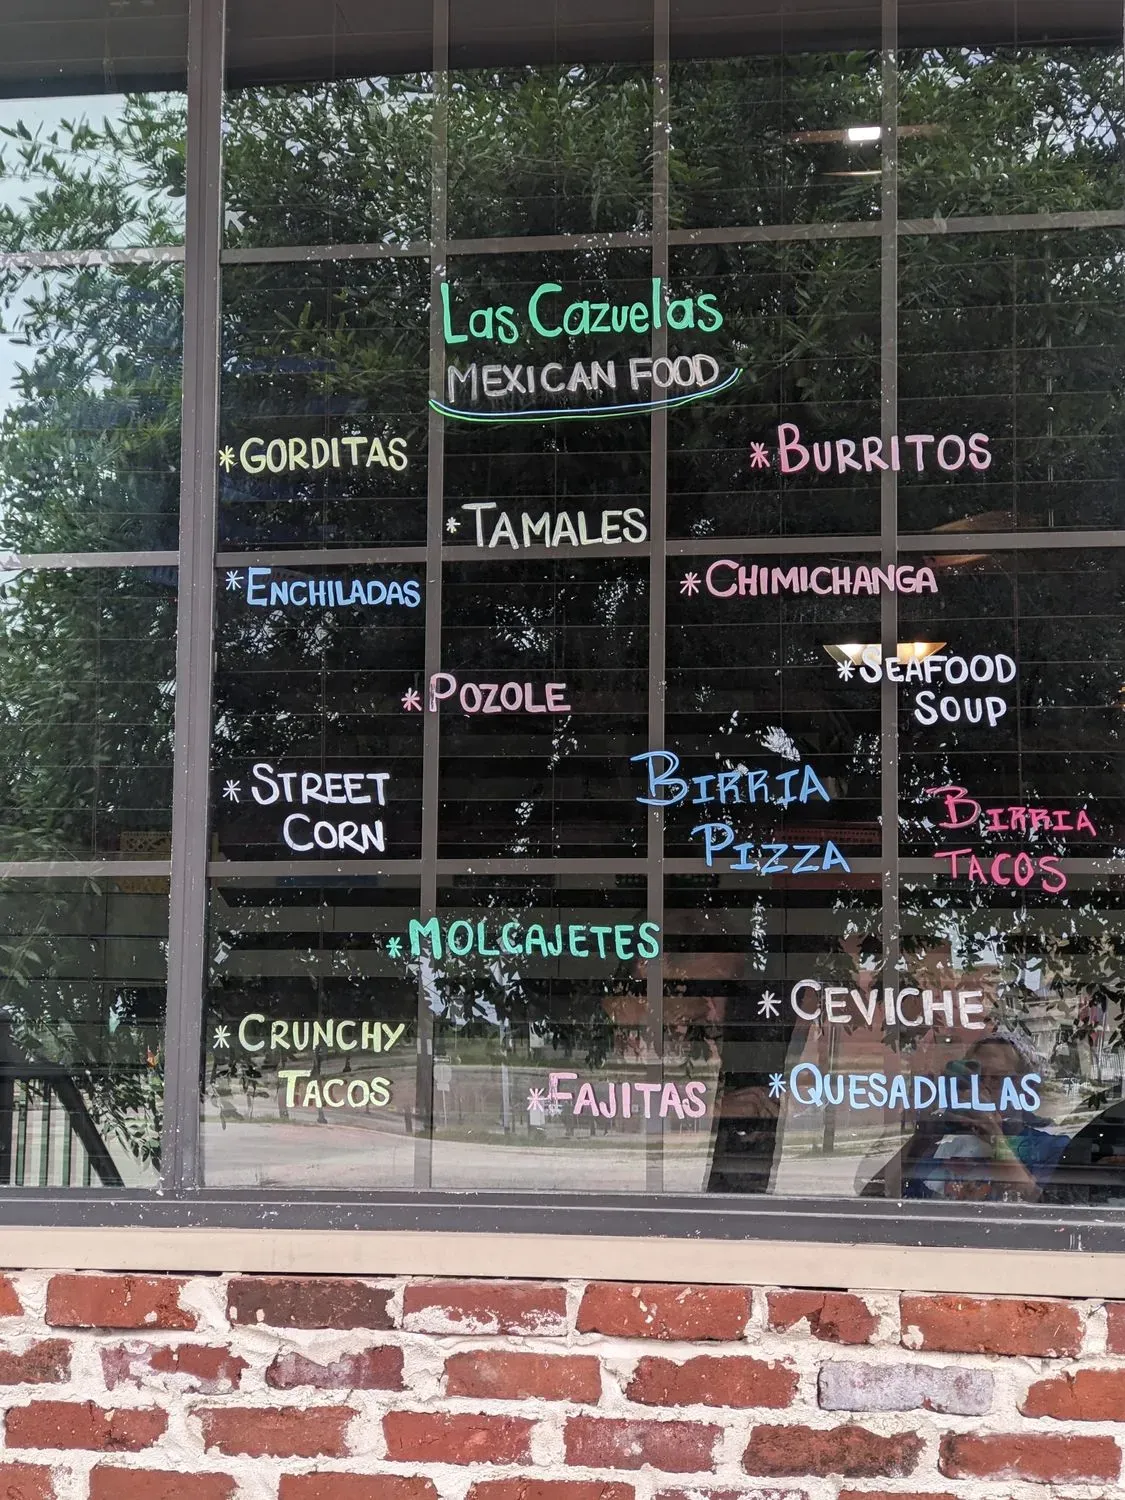 Las Cazuelas
MEXICAN FOOD
*GORDITAS
*BURRITOS
*TAMALES
*ENCHILADAS
*CHIMICHANGA
*SEAFOOD
SOUP
*POZOLE
*STREET
CORN
BIRRIA
PIZZA
BIRRIA
TACOS
*MOLCAJETES
*CEVICHE
*CRUNCHY
TACOS
*FAJITAS
*QUESADILLAS